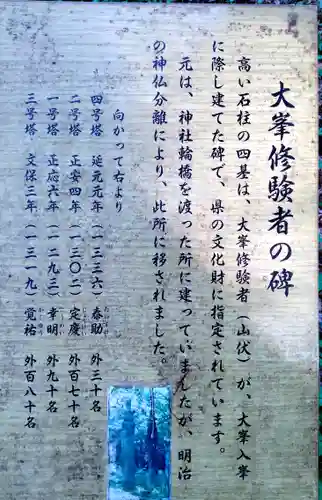 大峯修験者の碑
高い石柱の四基は、大峯修験者（山伏）が、大峯入峯
に際し建てた碑で、県の文化財に指定されています。
元は、神社輪橋を渡った所に建っていましたが、明治
の神仏分離により、此所に移されました。
向かって右より
四号塔 延元元年（一三三六）泰助 外三十名
二号塔 正安四年（一三〇二）定慶 外百七十名
一号塔 正応六年（一二九三）幸明 外九十名
三号塔 文保三年（一三一九）覚祐 外百八十名